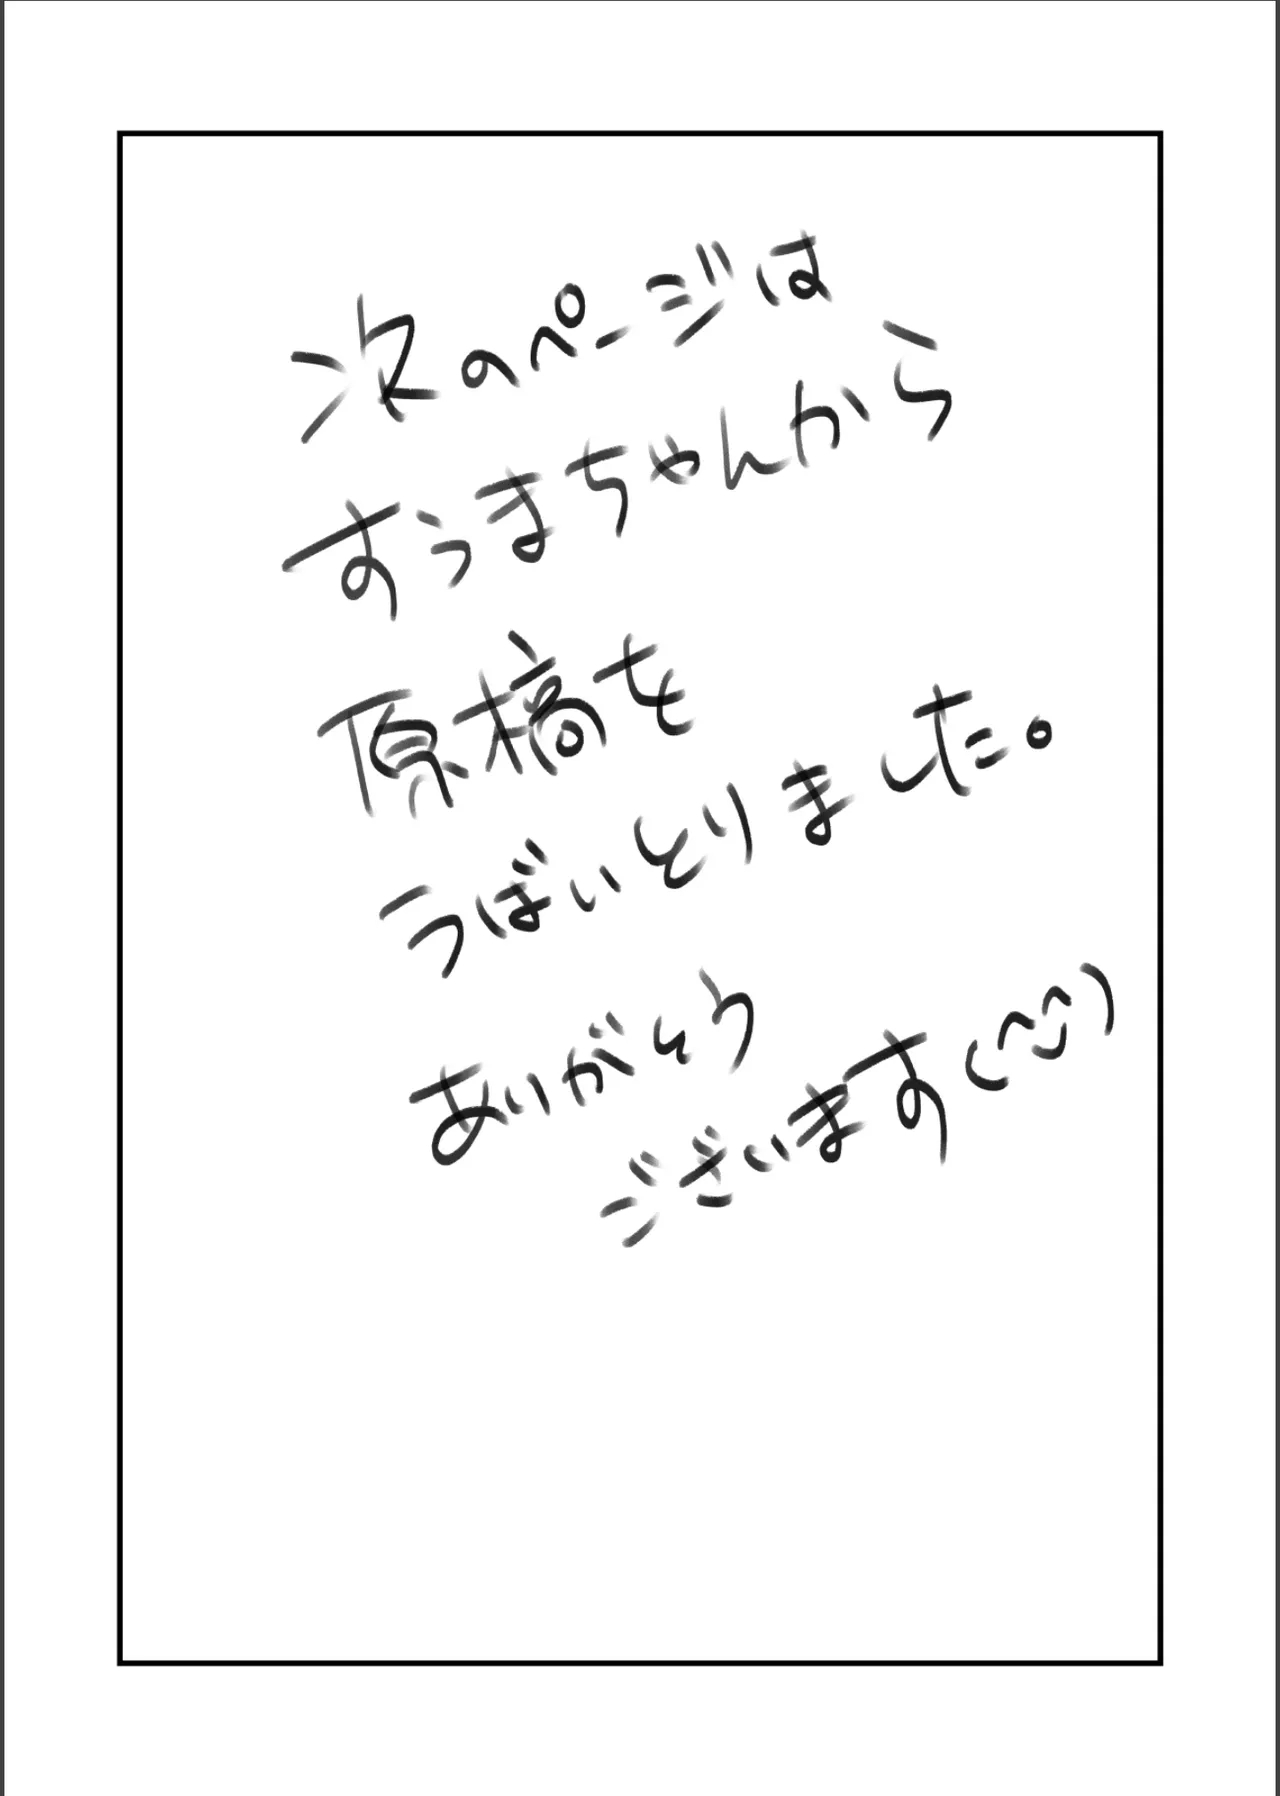 次のページは
すぅまちゃんから
原稿を
うばいとりました。
ありがとう
ございます(^^)